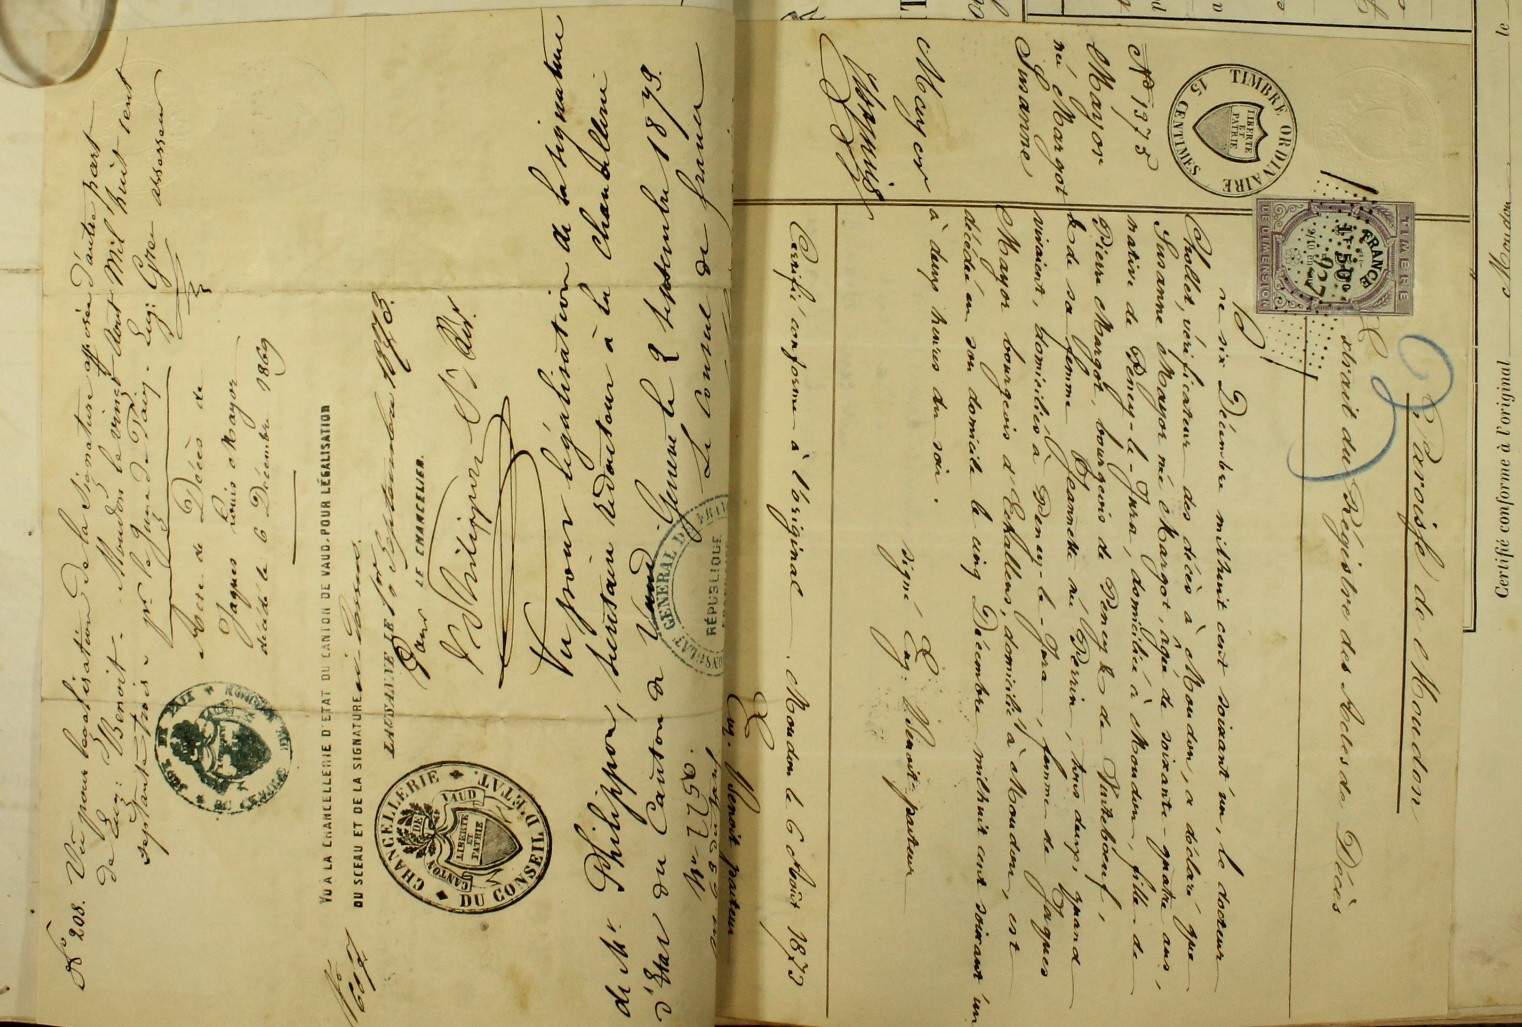 Paroisse de Moudon
Extrait du Régistre des Actes de Décès
TIMBRE ORDINAIRE
15 CENTIMES
LIBERTÉ
ET
PATRIE
No 1375
Mayor
né Margot
Susanne
Mayor
TIMBRE
FRANCE
50
927
DIMENSION
Le six Décembre milhuit cent soixant'un, le docteur
Chollet, vérificateur des décès à Moudon, a déclaré que
Susanne Mayor née Margot, agée de soixante-quatre ans,
native de Peney-le-Jura, domicilié à Moudon, fille de
Pierre Margot, bourgeois de Peney & de Vuiteboeuf,
& de sa femme Jeannette née Perrin, tous deux, quand
vivaient, domiciliés à Peney-le-Jura, femme de Jaques
Mayor bourgeois d'Echallens, domicilié à Moudon, est
décédé en son domicile le cinq Décembre milhuit cent soixant'un
à deux heures du soir.
signé Eug. Benoit pasteur
Certifié conforme à l'original Moudon le 6 Août 1873
Eug. Benoit pasteur
No 208. Vu pour légalisation de la signature apposée d'autre part
de Eug: Benoit. Moudon le vingt Août Mil huit cent
septante trois.
pr le Juge de Paix. assesseur
JUGE DE PAIX
DU CERCLE DE MOUDON
Acte de Décès de
Jaques Louis Mayor
décédé le 6 Décembre 1869
VU A LA CHANCELLERIE D'ETAT DU CANTON DE VAUD, POUR LÉGALISATION
DU SCEAU ET DE LA SIGNATURE
LAUSANNE LE 1er Septembre 1873.
Pour LE CHANCELIER.
L. Philippon
No 667
CHANCELLERIE
DU CONSEIL D'ETAT.
CANTON DE VAUD
LIBERTÉ
ET
PATRIE
Vu pour légalisation de la signature
de Mr Philippon, secrétaire rédacteur à la chancellerie
d'Etat du Canton de Vaud. Geneve le 2 septembre 1873.
Le Consul de france
CONSULAT GENERAL DE FRANCE
RÉPUBLIQUE
Certifié conforme à l'original
Moudon
le